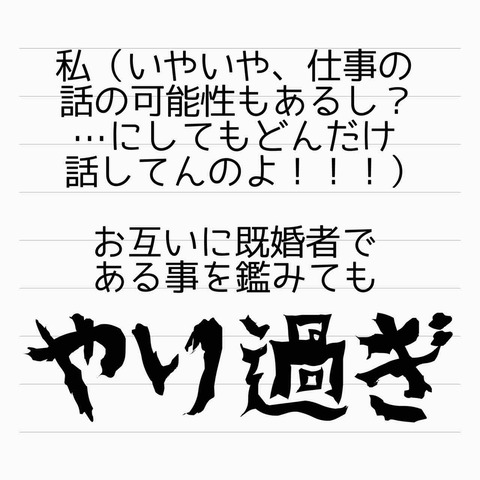 私（いやいや、仕事の
話の可能性もあるし？
…にしてもどんだけ
話してんのよ！！！）
お互いに既婚者で
ある事を鑑みても
やり過ぎ